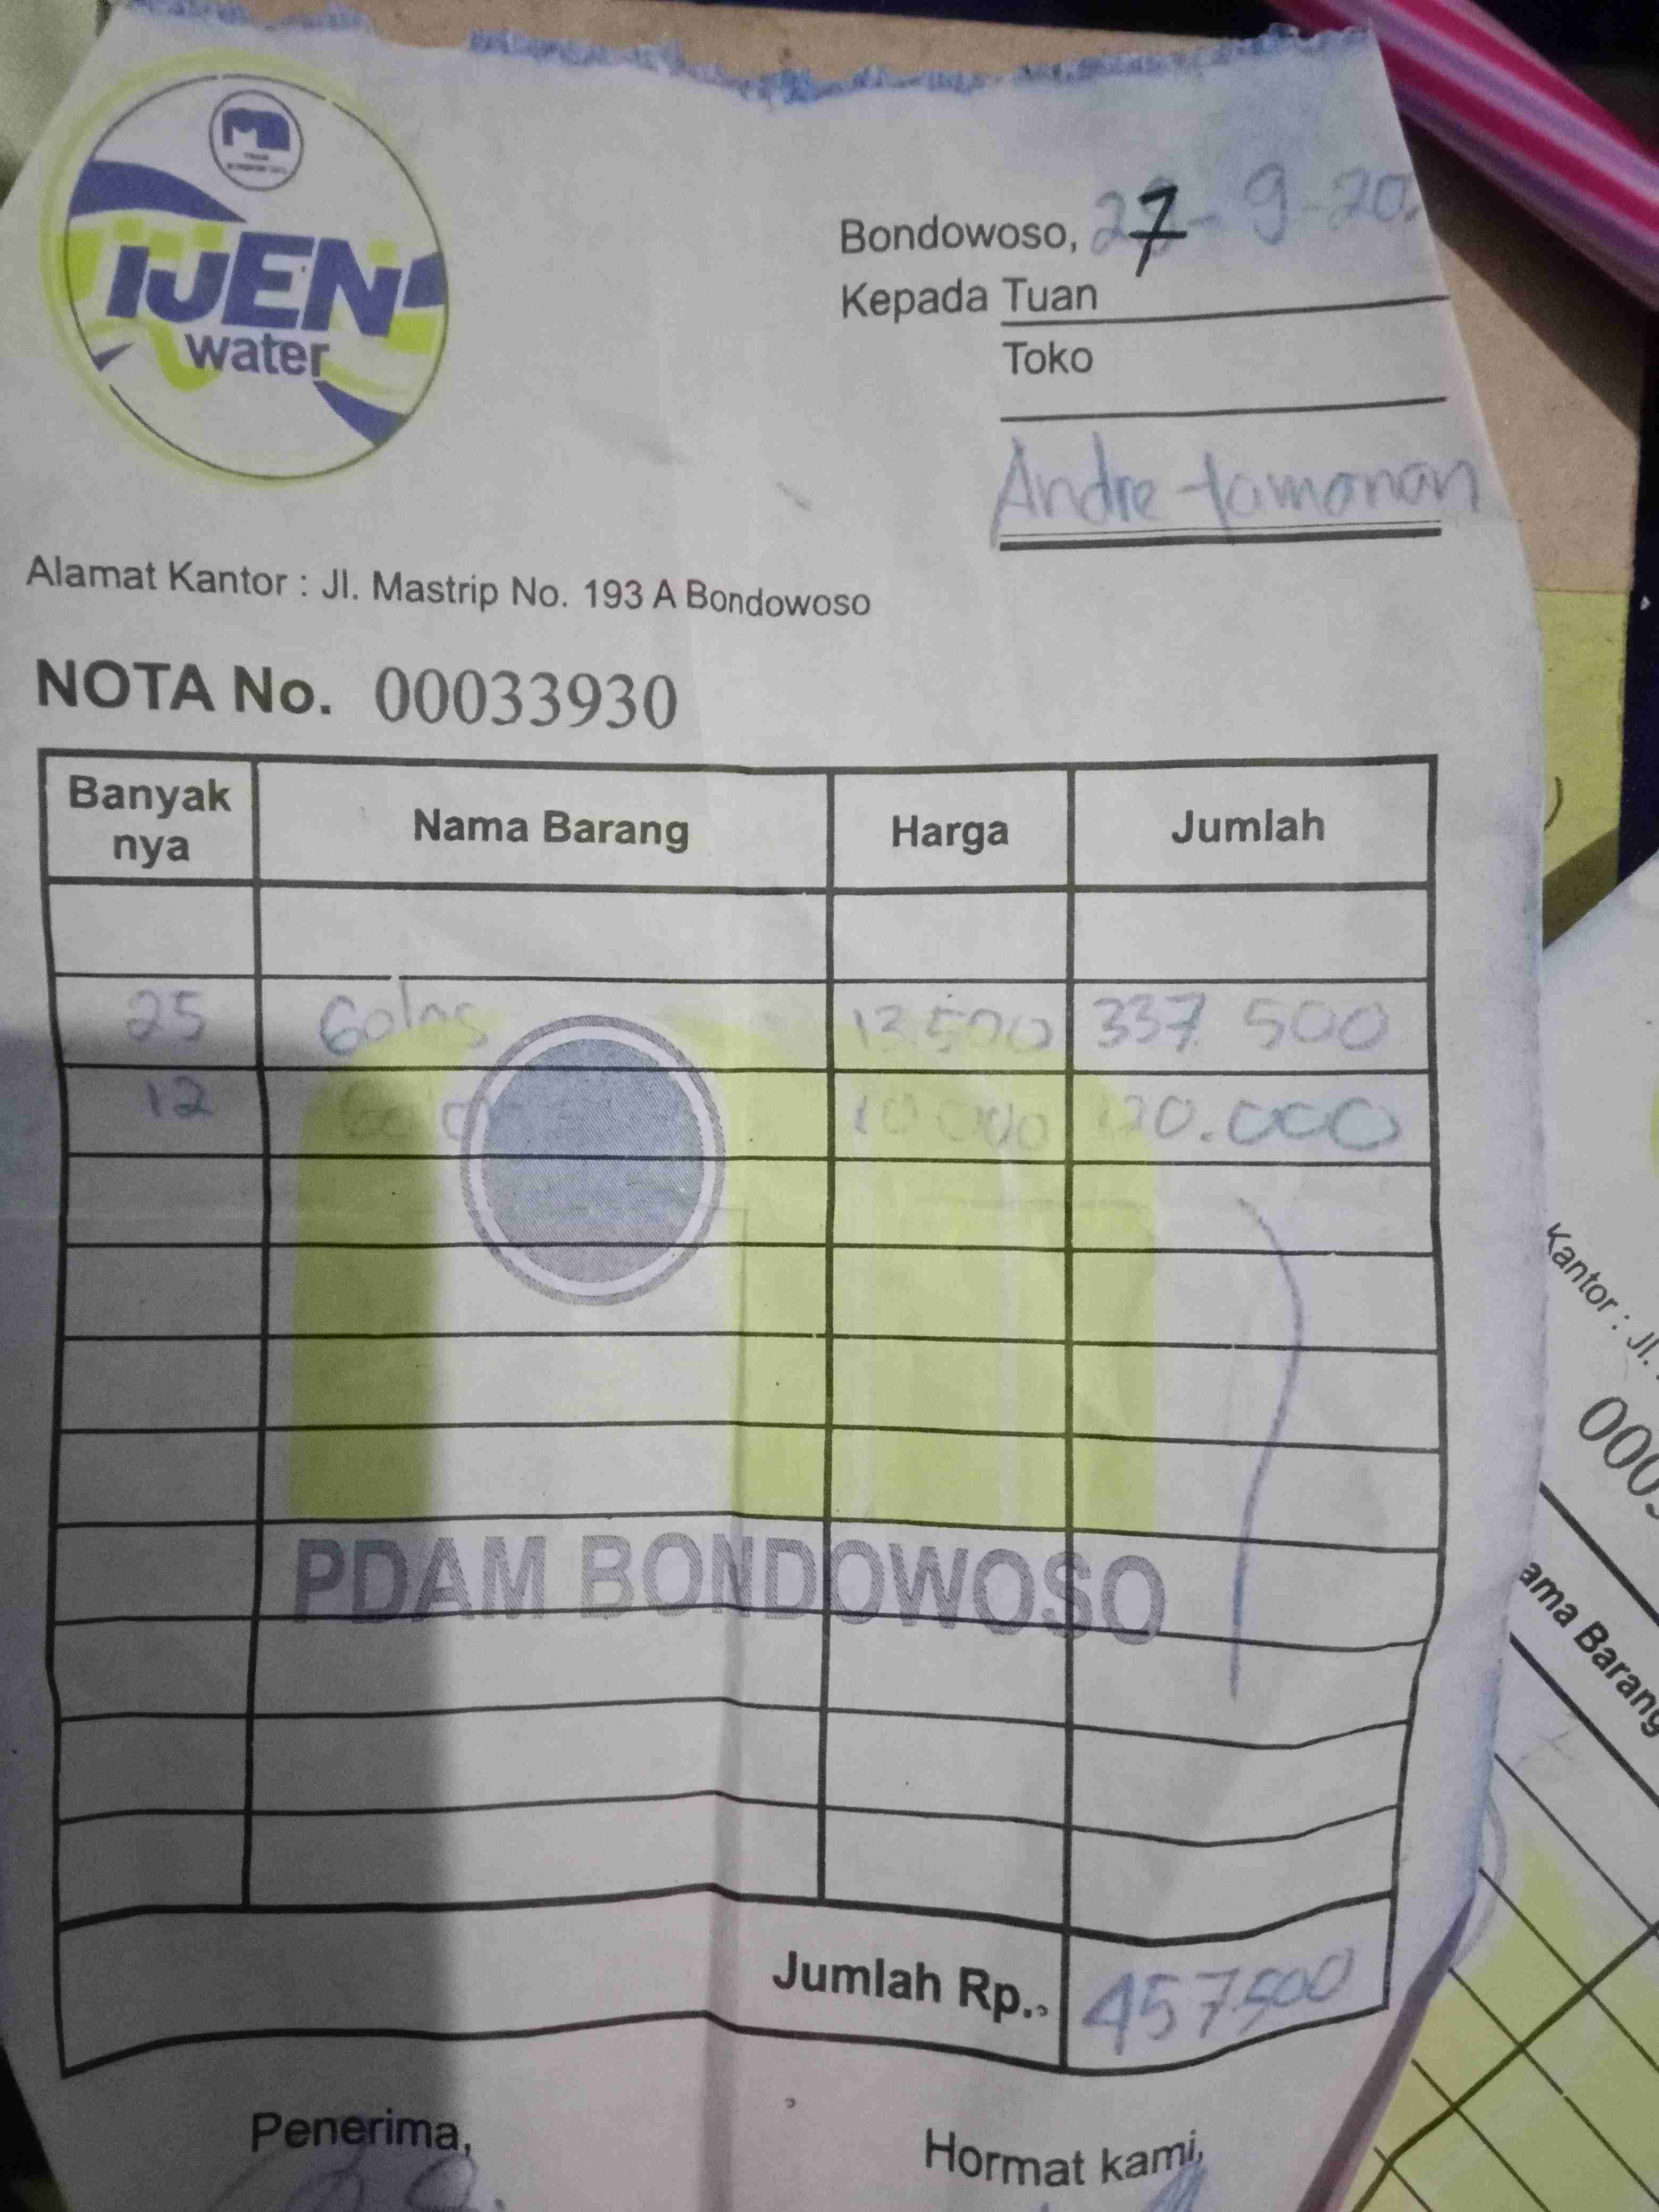 IJEN
water
Bondowoso, 27-9-20
Kepada Tuan
Toko
Andre tamanan
Alamat Kantor : Jl. Mastrip No. 193 A Bondowoso
NOTA No. 00033930
Banyak nya Nama Barang Harga Jumlah
25 Gelas 13.500 337.500
12 Galon 10.000 120.000
PDAM BONDOWOSO
Jumlah Rp. 457.500
Penerima,
Hormat kami,
Kantor : Jl.
000
ama Barang